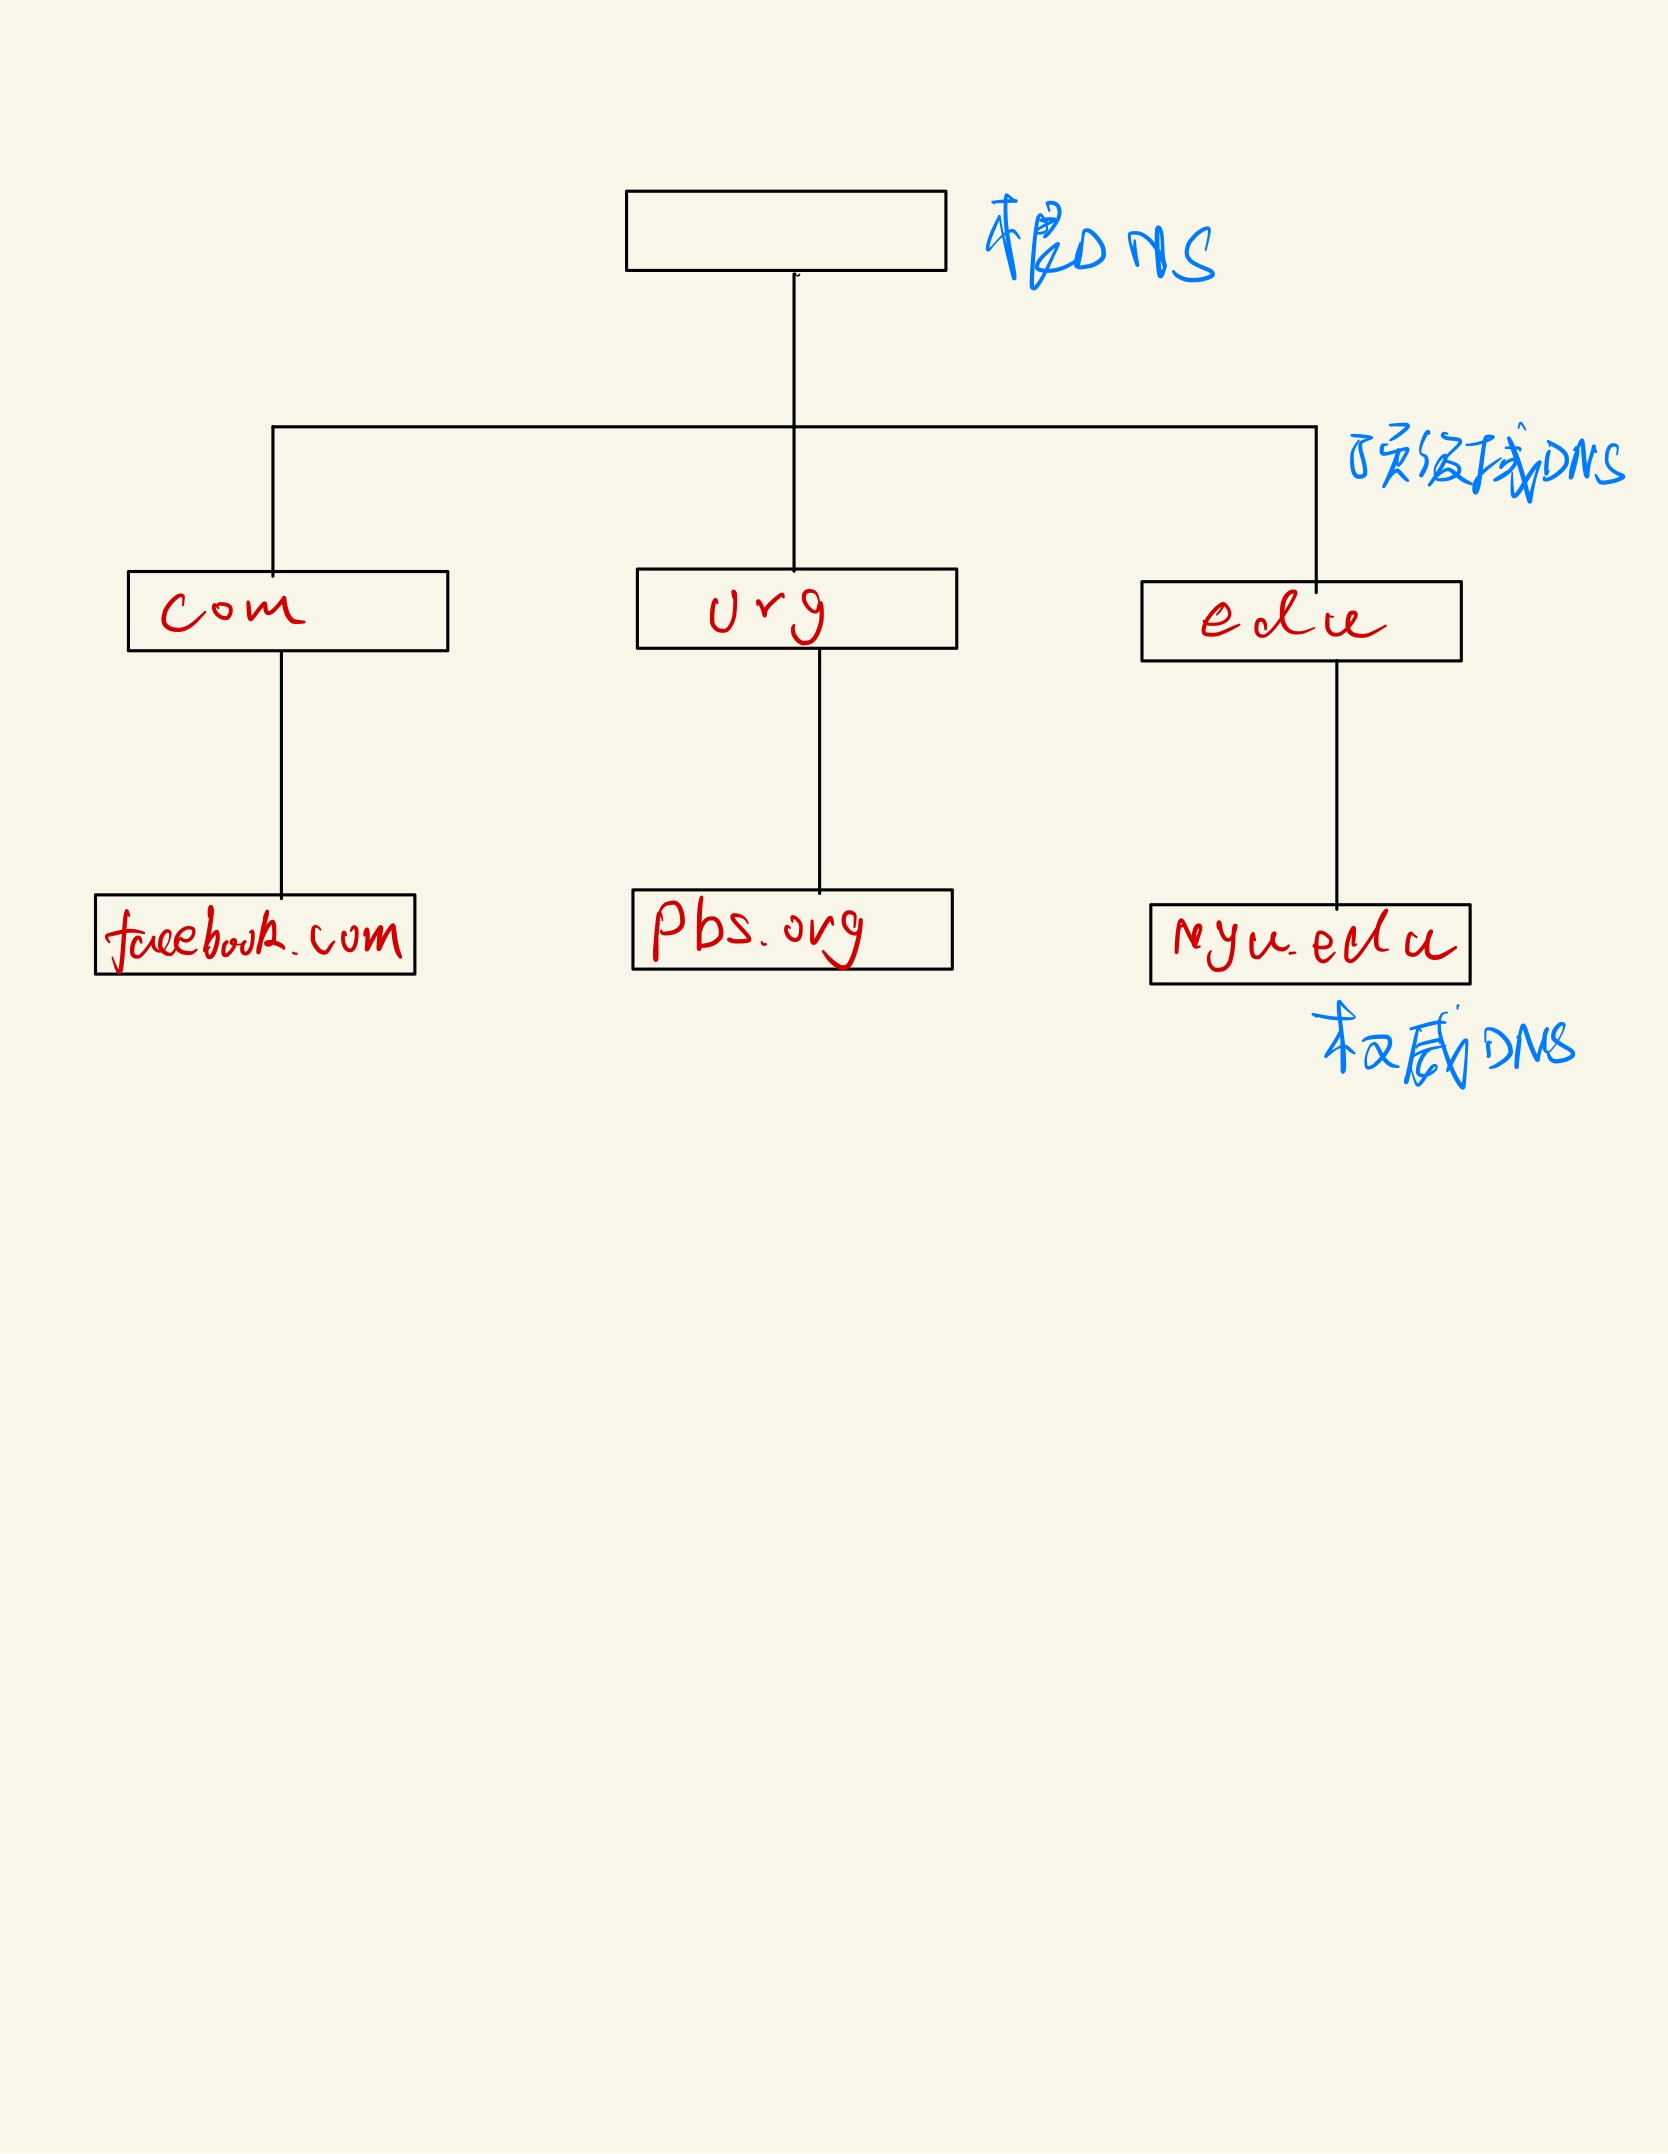 根DNS
顶级域DNS
com
org
edu
facebook.com
pbs.org
nyu.edu
权威DNS